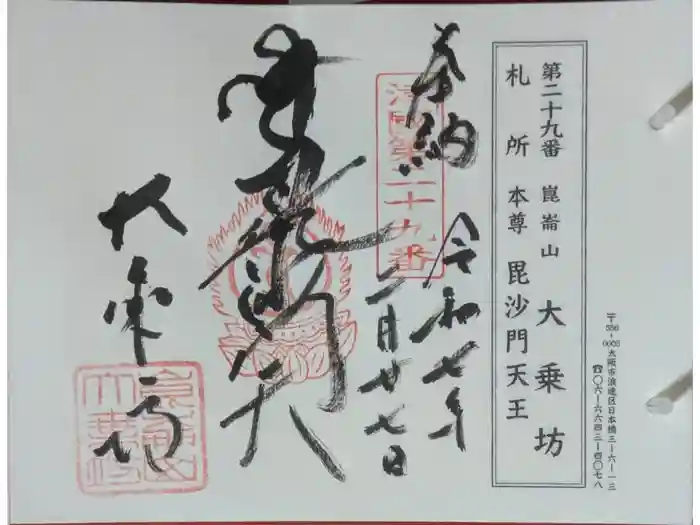 第二十九番 崑崙山 大乗坊
札所 本尊 毘沙門天王
〒556-0005 大阪市浪速区日本橋三-六-一三
☎〇六-六六四三-四〇七八
奉納
令和七年
二月廿七日
第二十九番
大乗坊